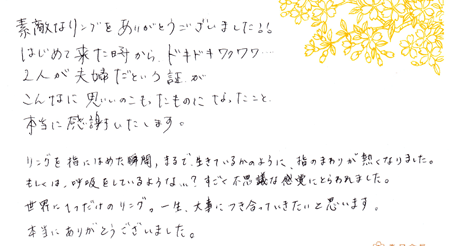 素敵なリングをありがとうございました!!
はじめて来た時から、ドキドキワクワク…
2人が夫婦だという証が
こんなに思いのこもったものになったこと
本当に感謝いたします。
リングを指にはめた瞬間、まるで、生きているかのように、指のまわりが熱くなりました。
もしくは、呼吸をしているような…? すごく不思議な感覚にとらわれました。
世界に1つだけのリング。一生、大事につき合っていきたいと思います。
本当にありがとうございました。